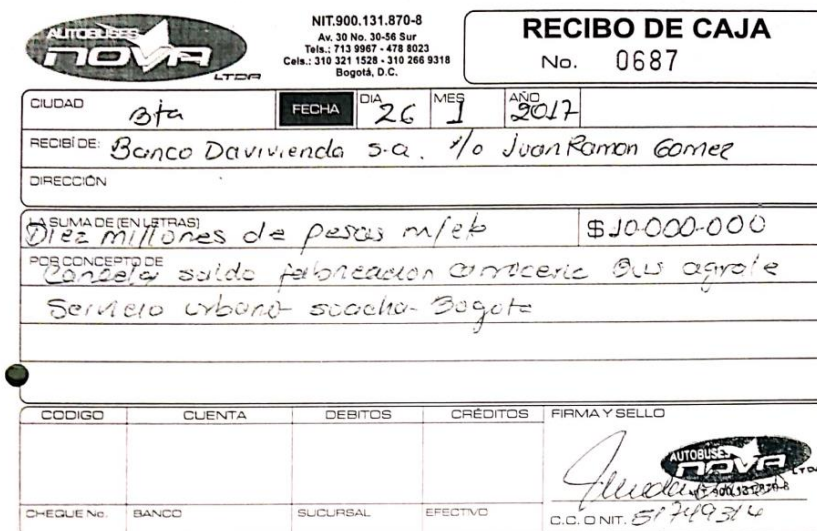 AUTOBUSES
NOVA
LTDA
NIT.900.131.870-8
Av. 30 No. 30-56 Sur
Tels.: 713 9967 - 478 8023
Cels.: 310 321 1528 - 310 266 9318
Bogotá, D.C.
RECIBO DE CAJA
No. 0687
CIUDAD Bta FECHA DIA 26 MES 1 AÑO 2017
RECIBÍ DE: Banco Davivienda s.a. y/o Juan Ramon Gomez
DIRECCIÓN
LA SUMA DE (EN LETRAS) Diez millones de pesos m/cte $10.000.000
POR CONCEPTO DE Cancela saldo fabricacion carroceria Bus agrale
Servicio urbano soacha - Bogota
CODIGO CUENTA DEBITOS CRÉDITOS FIRMA Y SELLO
AUTOBUSES
NOVA
LTDA
CHEQUE No. BANCO SUCURSAL EFECTIVO C.C. O NIT. 51749314